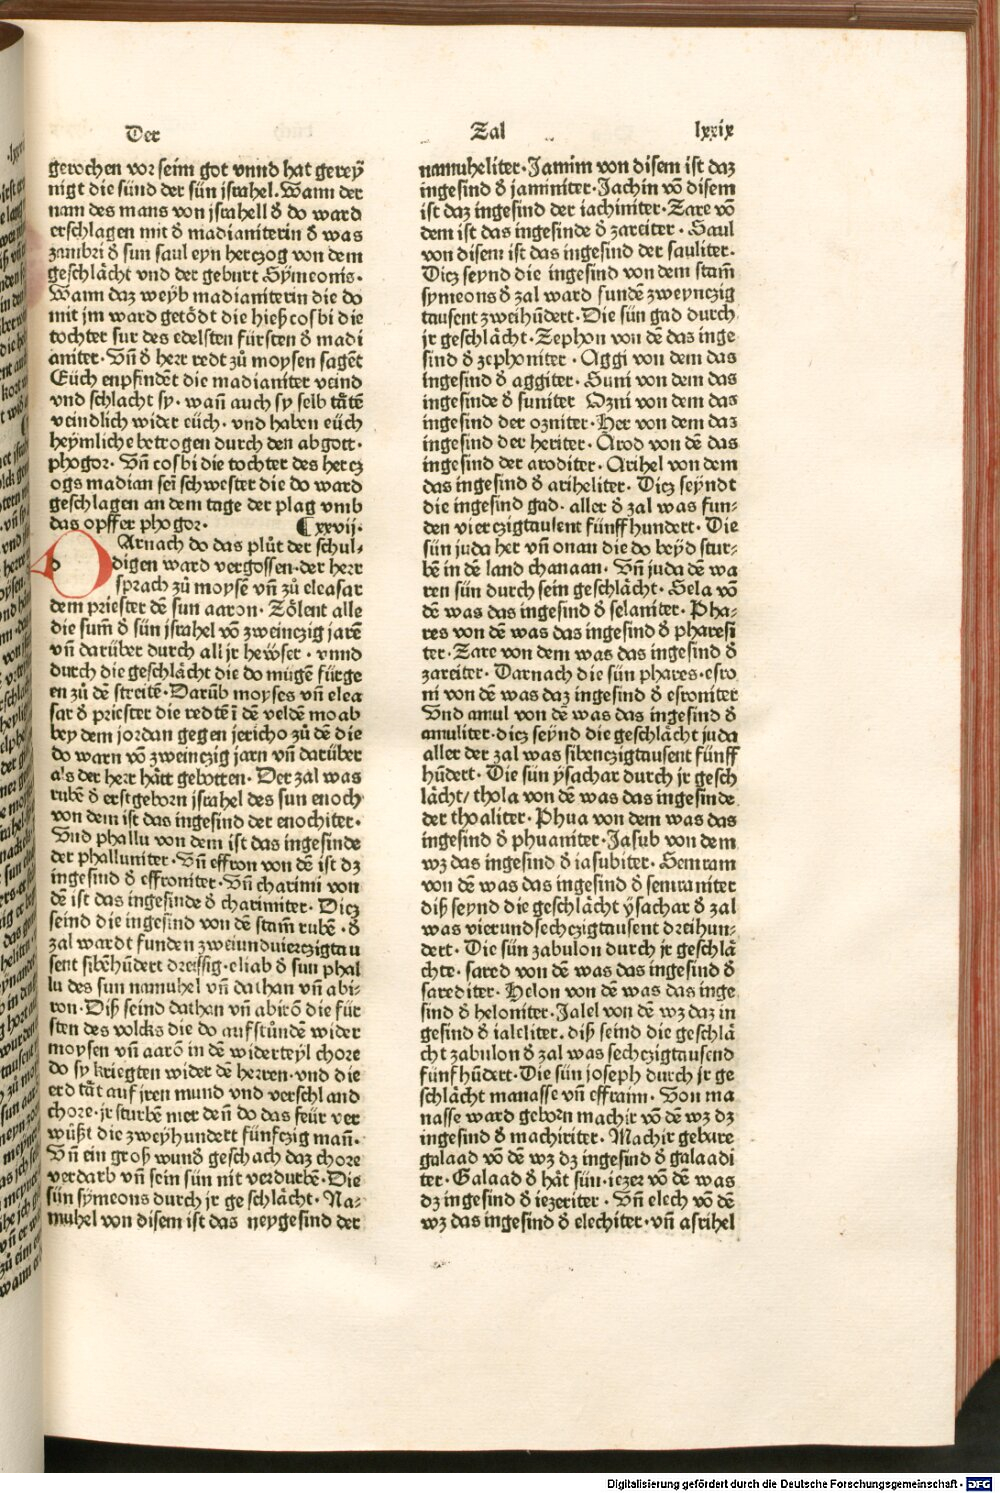 Der Zal lxxix
gerochen vor seim got vnnd hat gereÿ
nigt die sünd der sün jsrahel. Wann der
nam des mans von jsrahell đ do ward
erschlagen mit đ madianiterin đ was
zambri đ sun saul eyn herczog von dem
geschlächt vnd der geburt Sÿmeonis.
Wann daz weÿb madianiterin die do
mit jm ward getödt die hieß cosbi die
tochter sur des edelsten fürsten đ madi
aniter. Vn̄ đ herr redt zů moysen sagēt
Eüch enpfindēt die madianiter veind
vnd schlacht sy. wan̄ auch sy selb tåtē
veindlich wider eüch. vnd haben eüch
heÿmliche betrogen durch den abgott.
phogor. Vn̄ cosbi die tochter des hercz
ogs madian sei schwester die do ward
geschlagen an dem tage der plag vmb
das opffer phogor. ¶ xxvij.
DArnach do das plůt der schul⸗
digen ward vergossen. der herr
sprach zů moysē vn̄ zů eleasar
dem priester dē sun aaron. Zölent alle
die sum̄ đ sün jsrahel vō zweinczig jarē
vn̄ darüber durch all jr heẅser. vnnd
durch die geschlächt die do mügē fürge
en zů dē streitē. Darūb moyses vn̄ elea
sar đ priester die redtē ī dē veldē moab
bey dem jordan gegen jericho zů dē die
do warn vō zweinczig jarn vn̄ darüber
als der herr hätt gebotten. Der zal was
rubē đ erstgeborn jsrahel des sun enoch
von dem ist das ingesind der enochiter.
Vnd phallu von dem ist das ingesinde
der phalluniter. Vn̄ effron von dē ist dz
ingesind đ effroniter. Vn̄ charimi von
dē ist das ingesinde đ charimiter. Dicz
seind die ingesind von dē stam̄ rubē. đ
zal wardt funden zweiundvierczigtau
sent sibēhūdert dreissig. eliab đ sun phal
lu des sun namuhel vn̄ dathan vn̄ abi⸗
ron. Diß seind dathan vn̄ abirō die für
sten des volcks die do aufstůndē wider
moysen vn̄ aarō in dē widerteyl chore
do sy kriegten wider dē herren. vnd die
erd tåt auf jren mund vnd verschland
chore. jr sturbē nier den̄ do das feür ver
wüßt die zweÿhundert fünfczig man̄.
Vn̄ ein groß wund̄ geschach daz chore
verdarb vn̄ sein sün nit verdurbē. Die
sün sÿmeons durch jr geschlächt. Na⸗
muhel von disem ist das neygesind der
namuheliter. Jamim von disem ist daz
ingesind đ jaminiter. Jachin vō disem
ist daz ingesind der iachiniter. Zare vō
dem ist das ingesinde đ zareiter. Saul
von disem ist das ingesind der sauliter.
Dicz seynd die ingesind von dem stam̄
symeons đ zal ward fundē zweynczig
tausent zweihūdert. Die sün gad durch
jr geschlächt. Zephon von dē das inge
sind đ zephoniter. Aggi von dem das
ingesind đ aggiter. Suni von dem das
ingesinde đ suniter Ozni von dem das
ingesind der ozniter. Her von dem das
ingesind der heriter. Arod von dē das
ingesind der aroditer. Arihel von dem
das ingesind đ ariheliter. Dicz seÿndt
die ingesind gad. aller đ zal was fun⸗
den vierczigtausent fünffhundert. Die
sün juda her vn̄ onan die do beÿd stur⸗
bē in dē land chanaan. Vn̄ juda dē wa
ren sün durch sein geschlächt. Sela vō
dē was das ingesind đ selaniter. Pha⸗
res von dē was das ingesind đ pharesi
ter. Zare von dem was das ingesind đ
zareiter. Darnach die sün phares. esro
ni von dē was daz ingesind đ esroniter
Vnd amul von dē was das ingesind đ
amuliter. dicz seÿnd die geschlächt juda
aller der zal was sibenczigtausent fünff
hūdert. Die sün ÿsachar durch jr gesch
lächt/ thola von dē was das ingesinde
der thoaliter. Phua von dem was das
ingesind đ phuaniter. Jasub von dem
wz das ingesind đ iasubiter. Semram
von dē was das ingesind đ semraniter
diß seynd die geschlächt ÿsachar đ zal
was vierundsechczigtausent dreihun⸗
dert. Die sün zabulon durch jr geschlä
chte. sared von dē was das ingesind đ
sarediter. Helon von dē was das inge
sind đ heloniter. Jalel von dē wz daz in
gesind đ ialeliter. diß seind die geschlä
cht zabulon đ zal was sechczigtausend
fünfhūdert. Die sün joseph durch jr ge
schlächt manasse vn̄ effraim. Von ma
nasse ward geborn machir vō dē wz dz
ingesind đ machiriter. Machir gebare
galaad vō dē wz dz ingesind đ galaadi
ter. Galaad đ hät sün. iezer vō dē was
dz ingesind đ iezeriter. Vn̄ elech vō dē
wz das ingesind đ elechiter. vn̄ asrihel
Digitalisierung gefördert durch die Deutsche Forschungsgemeinschaft - DFG